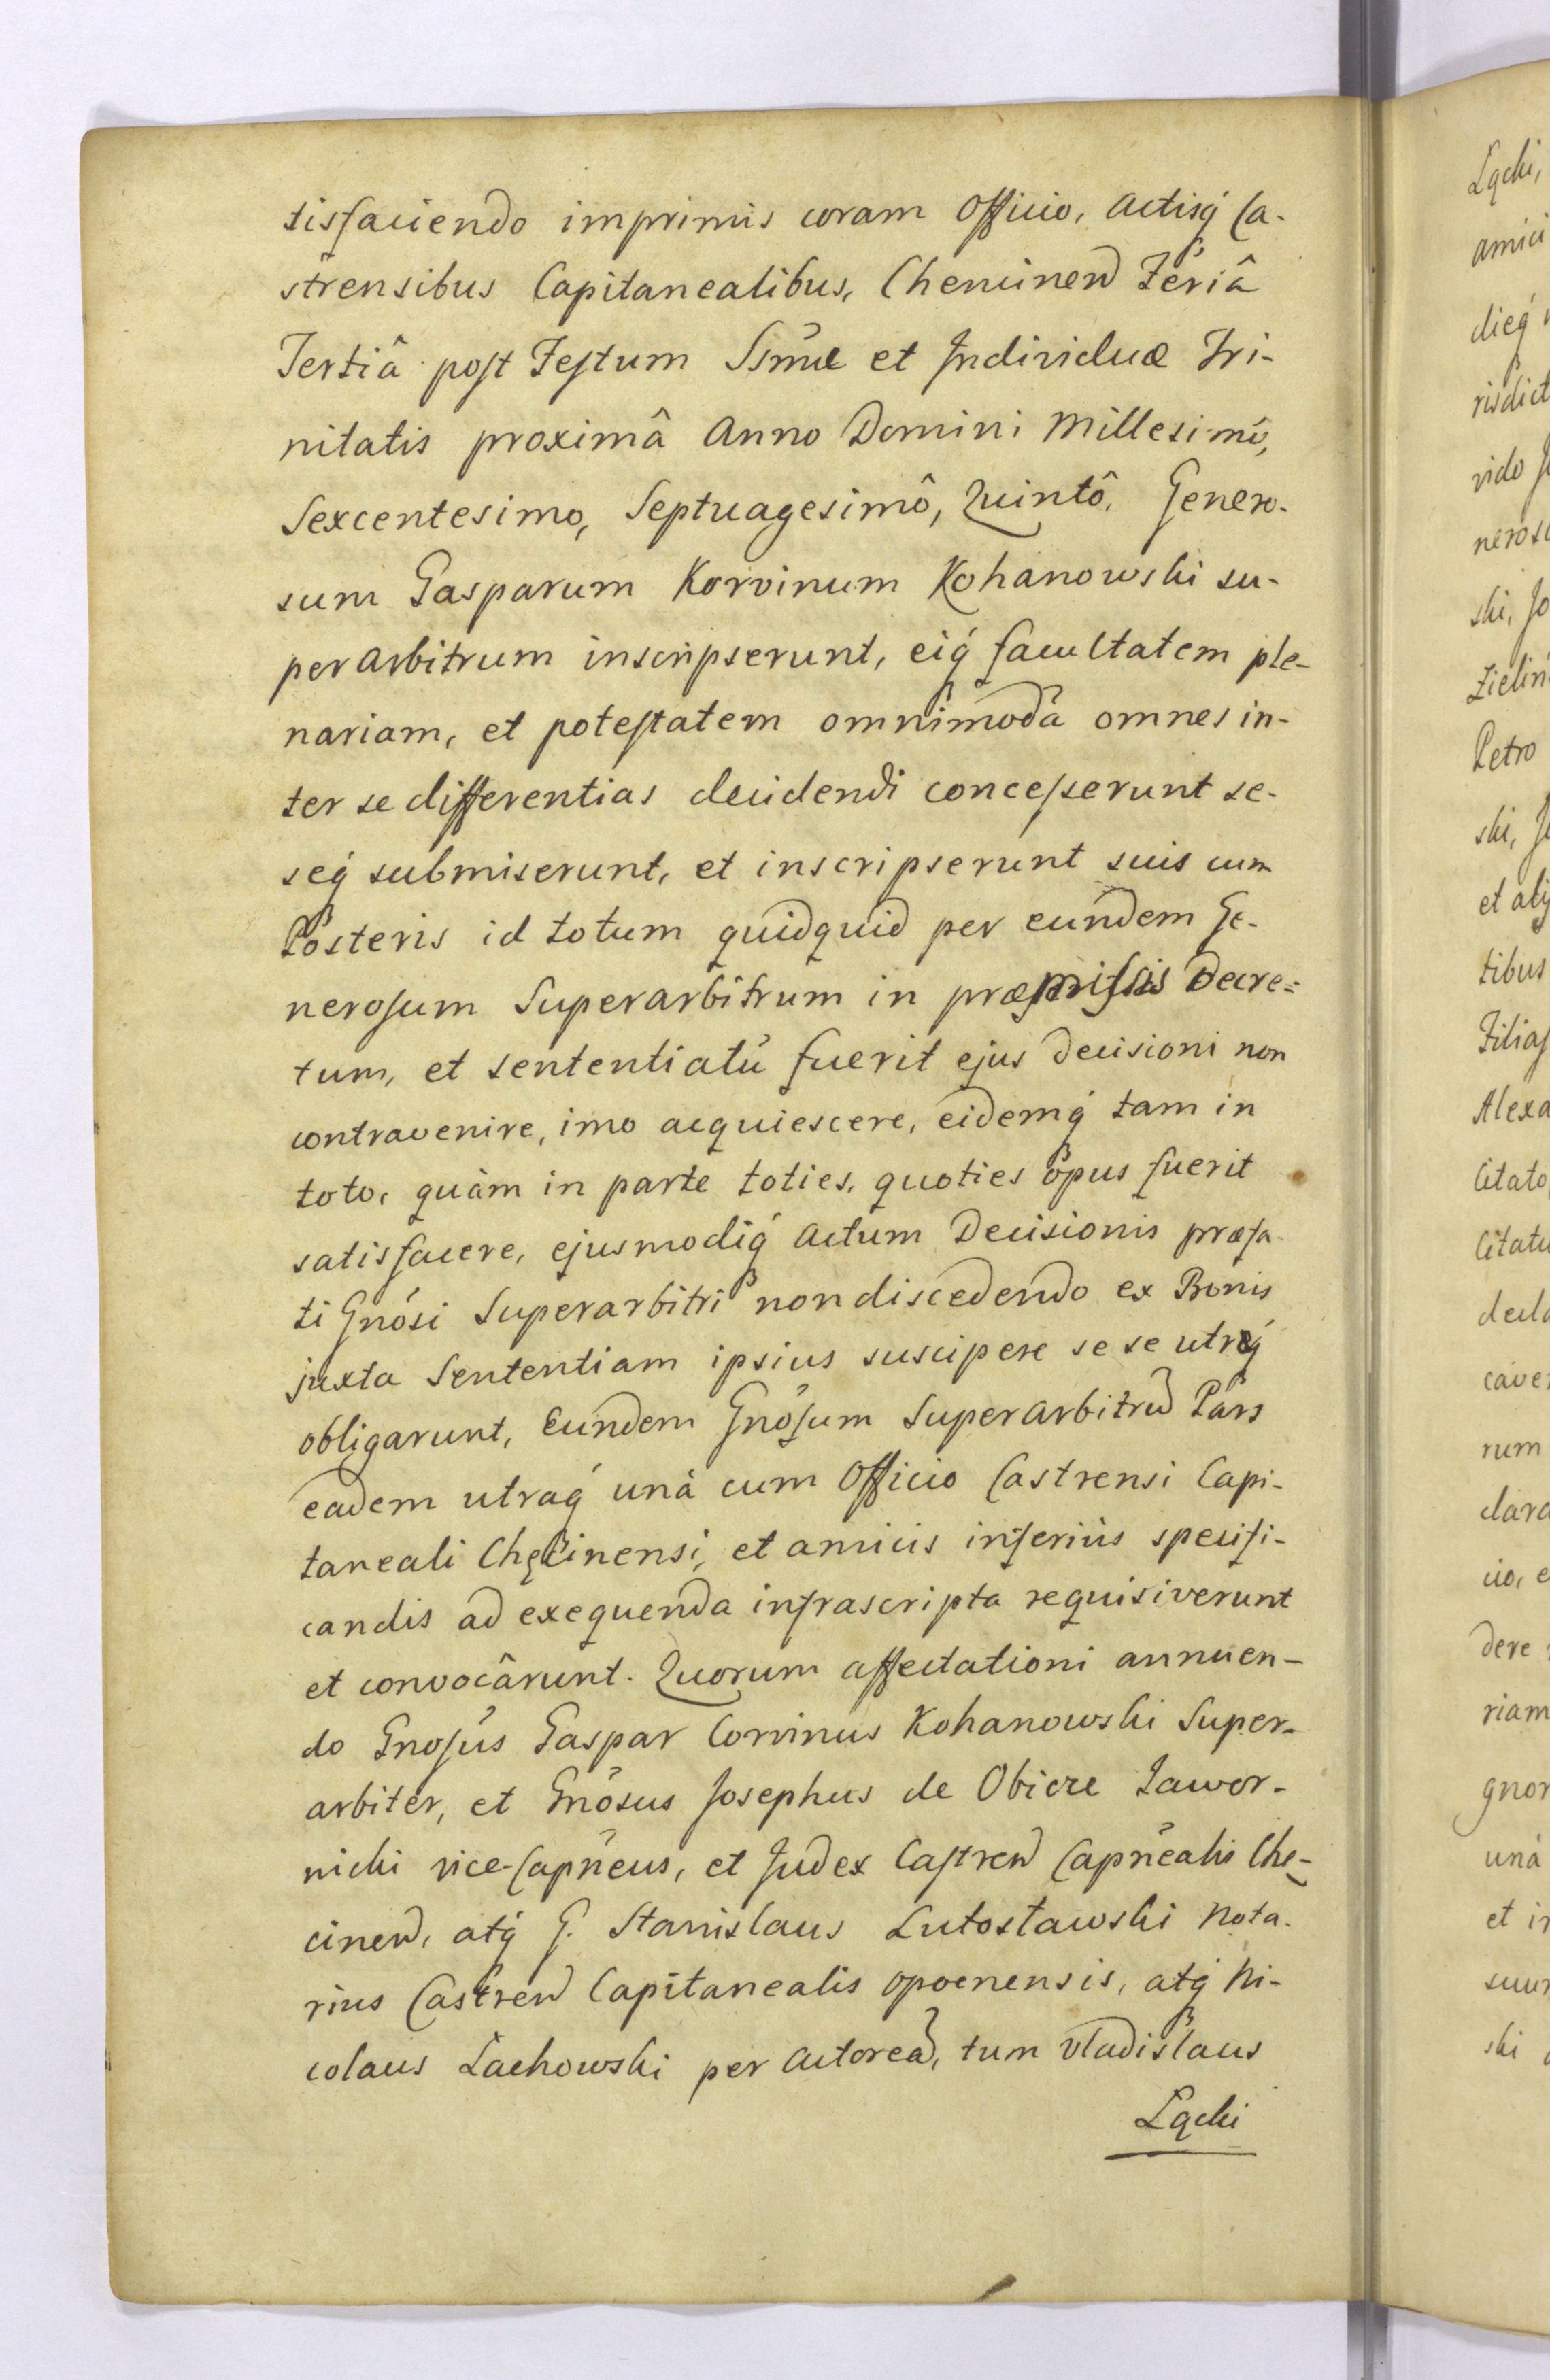 tisfaciendo imprimis coram Officio, Actisq́ Ca-
strensibus Capitanealibus, Chencinen Feriâ
Tertiâ post Festum SSmæ et Individuæ Tri-
nitatis proximâ Anno Domini Millesimô,
Sexcentesimo, Septuagesimô, Quintô. Genero-
sum Gasparum Korvinum Kohanowski su-
perarbitrum inscripserunt, eiq́ facultatem ple-
nariam, et potestatem omnimodā omnes in-
ter se differentias decidendi concesserunt se-
seq́ submiserunt, et inscripserunt suis cum
Posteris id totum quidquid per eundem Ge-
nerosum Superarbitrum in præmissis Decre=
tum, et sententiatū fuerit ejus Decisioni non
contravenire, imo acquiescere, eidemq́ tam in
toto, quàm in parte toties, quoties opus fuerit
satisfacere, ejusmodiq́ Actum Decisionis præfa-
ti Gnōsi Superarbitri non discedendo ex Bonis
juxta Sententiam ipsius suscipere se se utrq́
obligarunt, Eundem Gnōsum Superarbitrū Pars
eadem utraq́ unà cum Officio Castrensi Capi-
taneali Chęcinensi, et amicis inferiùs specifi-
candis ad exequenda infrascripta requisiverunt
et convocârunt. Quorum affectationi annuen-
do Gnosūs Gaspar Corvinus Kohanowski Super-
arbiter, et Gnōsus Josephus de Obicze Jawor-
nicki vice-Capnēus, et Judex Castren Capnēalis Chę-
cinen, atq́ G. Stanislaus Lutosławski Nota-
rius Castren Capitanealis Opocnensis, atq́ Ni-
colaus Lachowski per Actoreā, tum Vladislaus
Łącki
Łącki,
amici
dieq́
risdict
vido
neros
ski, Jo
zielin
Petro
ski,
et alij
tibus
Filiaſ
Alexa
Citato
Citatu
decla
cave
rum
clara
cio, e
dere
riam
gnor
unà
et in
suum
ski